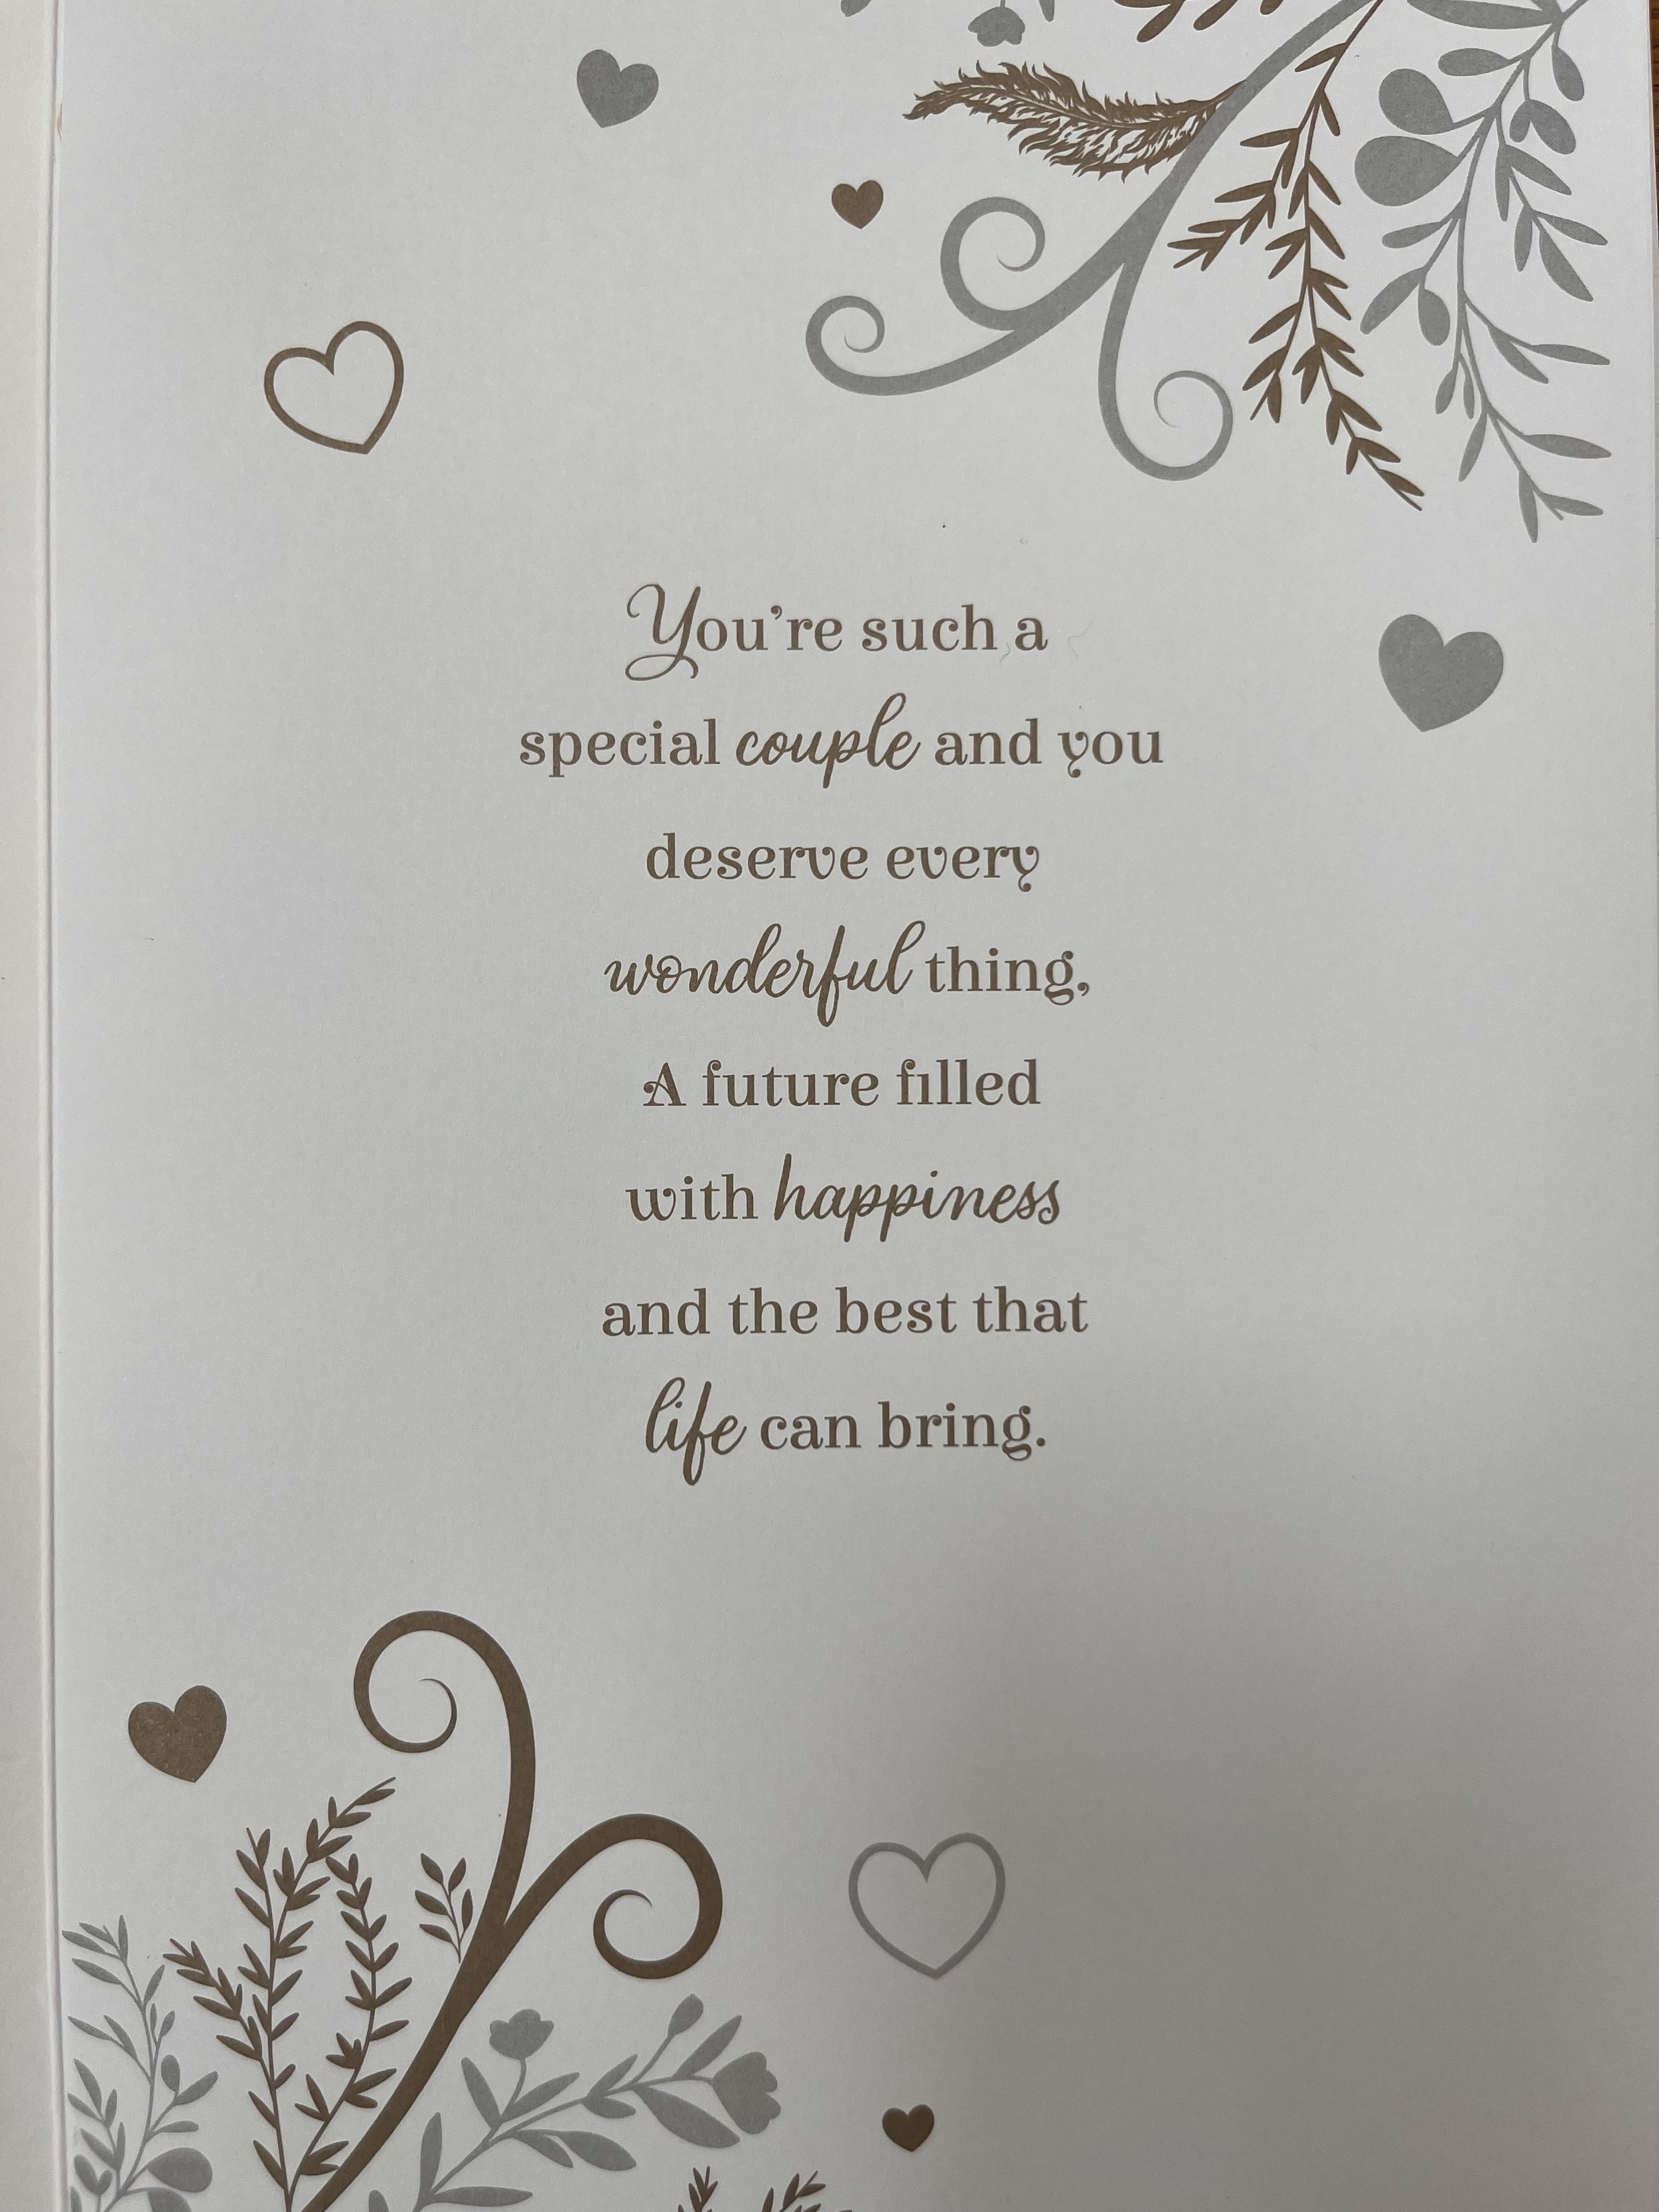 You're such a
special couple and you
deserve every
wonderful thing,
A future filled
with happiness
and the best that
life can bring.